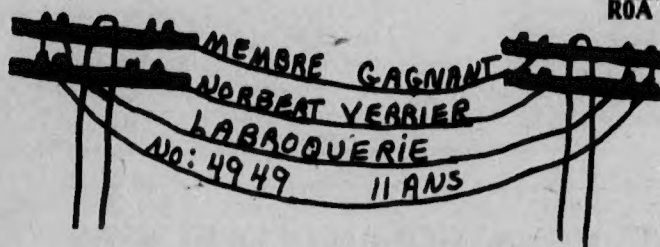 R0A
MEMBRE GAGNANT
NORBERT VERRIER
LABROQUERIE
NO: 4949 11 ANS